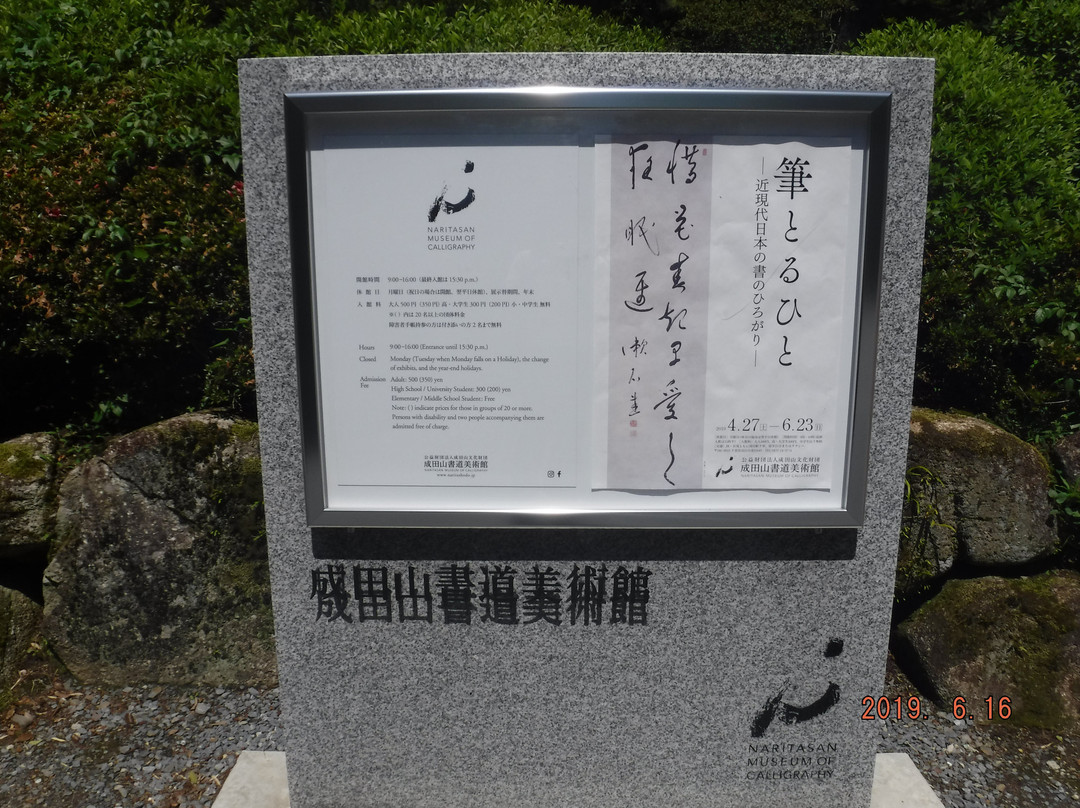 NARITASAN
MUSEUM OF
CALLIGRAPHY
開館時間 9:00~16:00 (最終入館は 15:30 p.m.)
休館日 月曜日 (祝日の場合は開館、翌平日休館)、展示替期間、年末
入館料 大人 500 円 (350 円) 高・大学生 300 円 (200 円) 小・中学生 無料
※( ) 内は 20 名以上の団体料金
障害者手帳持参の方は付き添いの方 2 名まで無料
Hours 9:00~16:00 (Entrance until 15:30 p.m.)
Closed Monday (Tuesday when Monday falls on a Holiday), the change
of exhibits, and the year-end holidays.
Admission Fee Adult: 500 (350) yen
High School / University Student: 300 (200) yen
Elementary / Middle School Student: Free
Note: ( ) indicate prices for those in groups of 20 or more.
Persons with disability and two people accompanying them are
admitted free of charge.
公益財団法人成田山文化財団
成田山書道美術館
NARITASAN MUSEUM OF CALLIGRAPHY
筆とるひと
―近現代日本の書のひろがり―
惜花春起早愛し
夜眠遅 漱石
2019 4.27(土)―6.23(日)
公益財団法人成田山文化財団
成田山書道美術館
NARITASAN MUSEUM OF CALLIGRAPHY
成田山書道美術館
NARITASAN
MUSEUM OF
CALLIGRAPHY
2019. 6.16